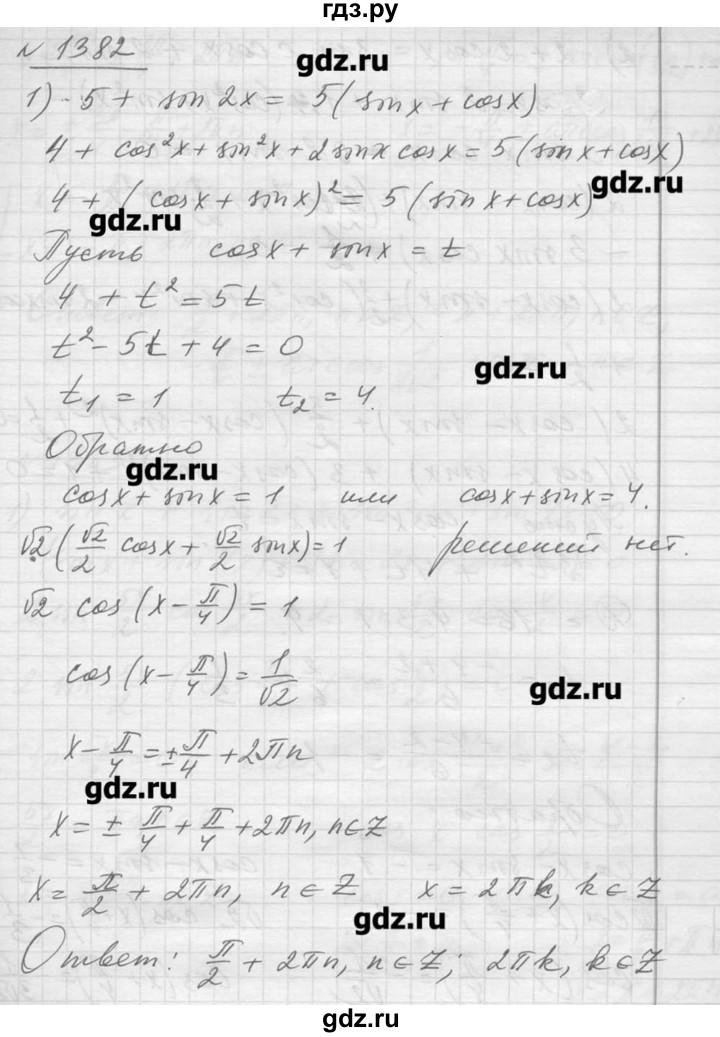 гдз.ру
№ 1382
gdz.ru
1) - 5 + sin 2x = 5 (sin x + cos x)
4 + cos²x + sin²x + 2 sin x cos x = 5 (sin x + cos x)
gdz.ru
4 + (cos x + sin x)² = 5 (sin x + cos x)
gdz.ru
Пусть cos x + sin x = t
4 + t² = 5t
t² - 5t + 4 = 0
gdz.ru
t₁ = 1 t₂ = 4.
Обратно
gdz.ru
cos x + sin x = 1 или cos x + sin x = 4.
√2 (√2/2 cos x + √2/2 sin x) = 1 решений нет.
√2 cos (x - π/4) = 1
cos (x - π/4) = 1/√2
gdz.ru
x - π/4 = ± π/4 + 2πn
gdz.ru
x = ± π/4 + π/4 + 2πn, n ∈ Z
x = π/2 + 2πn, n ∈ Z x = 2πk, k ∈ Z
gdz.ru
Ответ: π/2 + 2πn, n ∈ Z; 2πk, k ∈ Z
gdz.ru